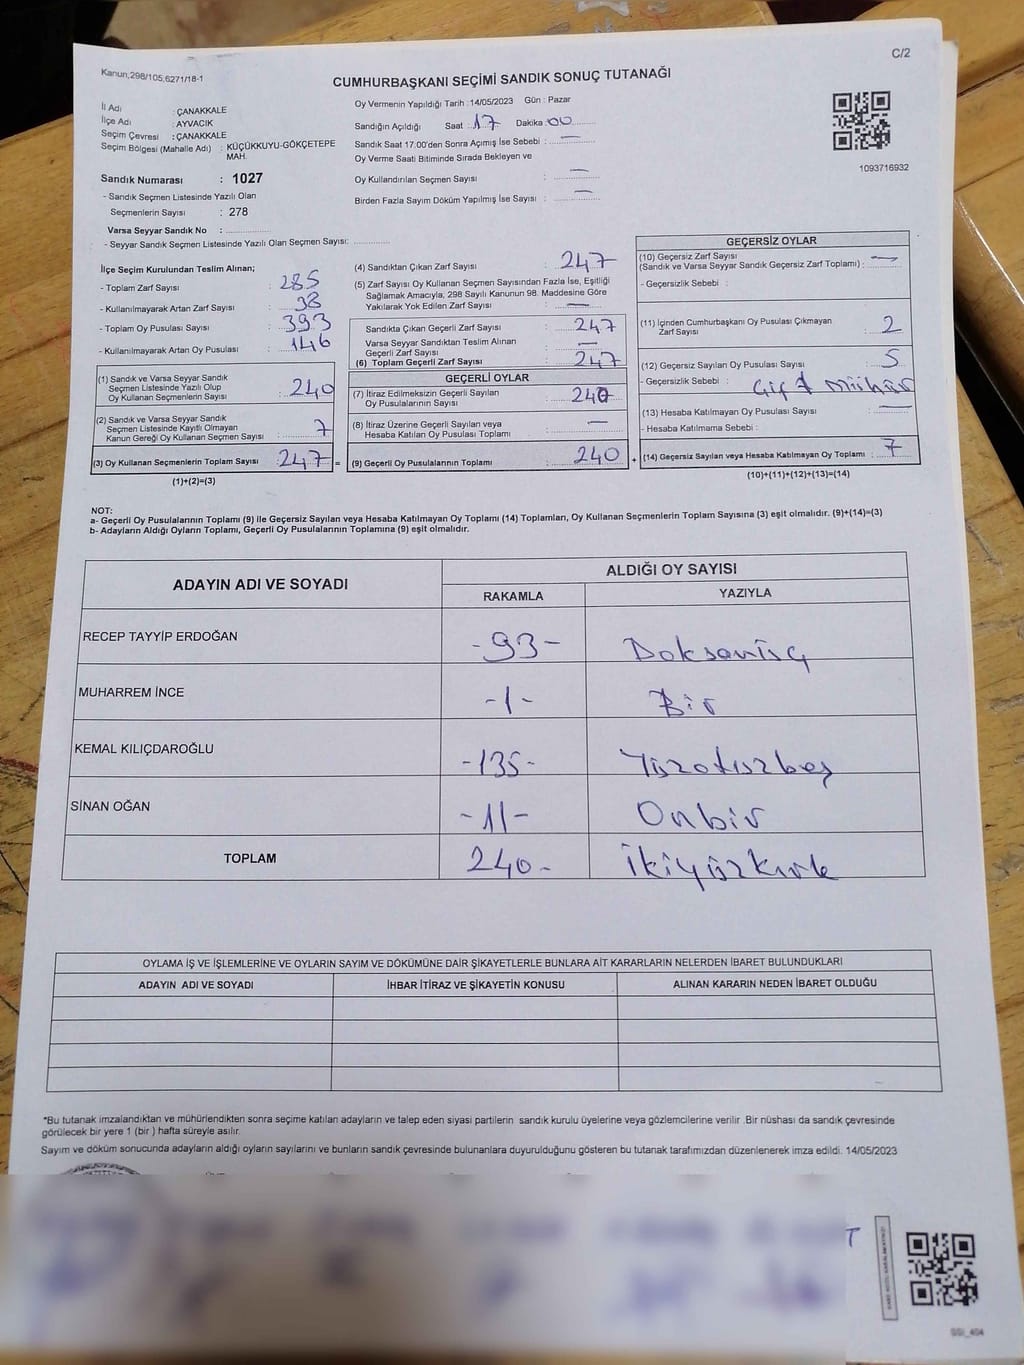 Kanun;298/105,6271/18-1
C/2
CUMHURBAŞKANI SEÇİMİ SANDIK SONUÇ TUTANAĞI
İl Adı : ÇANAKKALE
İlçe Adı : AYVACIK
Seçim Çevresi : ÇANAKKALE
Seçim Bölgesi (Mahalle Adı) : KÜÇÜKKUYU-GÖKÇETEPE
MAH.
Sandık Numarası : 1027
- Sandık Seçmen Listesinde Yazılı Olan
Seçmenlerin Sayısı : 278
Varsa Seyyar Sandık No :
- Seyyar Sandık Seçmen Listesinde Yazılı Olan Seçmen Sayısı:
Oy Vermenin Yapıldığı Tarih : 14/05/2023 Gün : Pazar
Sandığın Açıldığı Saat : 17 Dakika : 00
Sandık Saat 17.00'den Sonra Açımış İse Sebebi : —
Oy Verme Saati Bitiminde Sırada Bekleyen ve
Oy Kullandırılan Seçmen Sayısı : —
Birden Fazla Sayım Döküm Yapılmış İse Sayısı : —
1093716932
İlçe Seçim Kurulundan Teslim Alınan;
- Toplam Zarf Sayısı : 285
- Kullanılmayarak Artan Zarf Sayısı : 38
- Toplam Oy Pusulası Sayısı : 393
- Kullanılmayarak Artan Oy Pusulası : 146
(1) Sandık ve Varsa Seyyar Sandık
Seçmen Listesinde Yazılı Olup
Oy Kullanan Seçmenlerin Sayısı : 240
(2) Sandık ve Varsa Seyyar Sandık
Seçmen Listesinde Kayıtlı Olmayan
Kanun Gereği Oy Kullanan Seçmen Sayısı : 7
(3) Oy Kullanan Seçmenlerin Toplam Sayısı : 247 =
(1)+(2)=(3)
(4) Sandıktan Çıkan Zarf Sayısı : 247
(5) Zarf Sayısı Oy Kullanan Seçmen Sayısından Fazla İse, Eşitliği
Sağlamak Amacıyla, 298 Sayılı Kanunun 98. Maddesine Göre
Yakılarak Yok Edilen Zarf Sayısı : —
Sandıkta Çıkan Geçerli Zarf Sayısı : 247
Varsa Seyyar Sandıktan Teslim Alınan
Geçerli Zarf Sayısı : —
(6) Toplam Geçerli Zarf Sayısı : 247
GEÇERLİ OYLAR
(7) İtiraz Edilmeksizin Geçerli Sayılan
Oy Pusulalarının Sayısı : 240
(8) İtiraz Üzerine Geçerli Sayılan veya
Hesaba Katılan Oy Pusulası Toplamı : —
(9) Geçerli Oy Pusulalarının Toplamı : 240 +
GEÇERSİZ OYLAR
(10) Geçersiz Zarf Sayısı
(Sandık ve Varsa Seyyar Sandık Geçersiz Zarf Toplamı) : —
- Geçersizlik Sebebi :
(11) İçinden Cumhurbaşkanı Oy Pusulası Çıkmayan
Zarf Sayısı : 2
(12) Geçersiz Sayılan Oy Pusulası Sayısı : 5
- Geçersizlik Sebebi : Çift mühür
(13) Hesaba Katılmayan Oy Pusulası Sayısı : —
- Hesaba Katılmama Sebebi :
(14) Geçersiz Sayılan veya Hesaba Katılmayan Oy Toplamı : 7
(10)+(11)+(12)+(13)=(14)
NOT:
a- Geçerli Oy Pusulalarının Toplamı (9) ile Geçersiz Sayılan veya Hesaba Katılmayan Oy Toplamı (14) Toplamları, Oy Kullanan Seçmenlerin Toplam Sayısına (3) eşit olmalıdır. (9)+(14)=(3)
b- Adayların Aldığı Oyların Toplamı, Geçerli Oy Pusulalarının Toplamına (9) eşit olmalıdır.
ADAYIN ADI VE SOYADI ALDIĞI OY SAYISI
RAKAMLA YAZIYLA
RECEP TAYYİP ERDOĞAN -93- Doksanüç
MUHARREM İNCE -1- Bir
KEMAL KILIÇDAROĞLU -135- Yüzotuzbeş
SİNAN OĞAN -11- Onbir
TOPLAM 240- İkiyüzkırk
OYLAMA İŞ VE İŞLEMLERİNE VE OYLARIN SAYIM VE DÖKÜMÜNE DAİR ŞİKAYETLERLE BUNLARA AİT KARARLARIN NELERDEN İBARET BULUNDUKLARI
ADAYIN ADI VE SOYADI İHBAR İTİRAZ VE ŞİKAYETİN KONUSU ALINAN KARARIN NEDEN İBARET OLDUĞU
*Bu tutanak imzalandıktan ve mühürlendikten sonra seçime katılan adayların ve talep eden siyasi partilerin sandık kurulu üyelerine veya gözlemcilerine verilir .Bir nüshası da sandık çevresinde
görülecek bir yere 1 (bir ) hafta süreyle asılır.
Sayım ve döküm sonucunda adayların aldığı oyların sayılarını ve bunların sandık çevresinde bulunanlara duyurulduğunu gösteren bu tutanak tarafımızdan düzenlenerek imza edildi. 14/05/2023